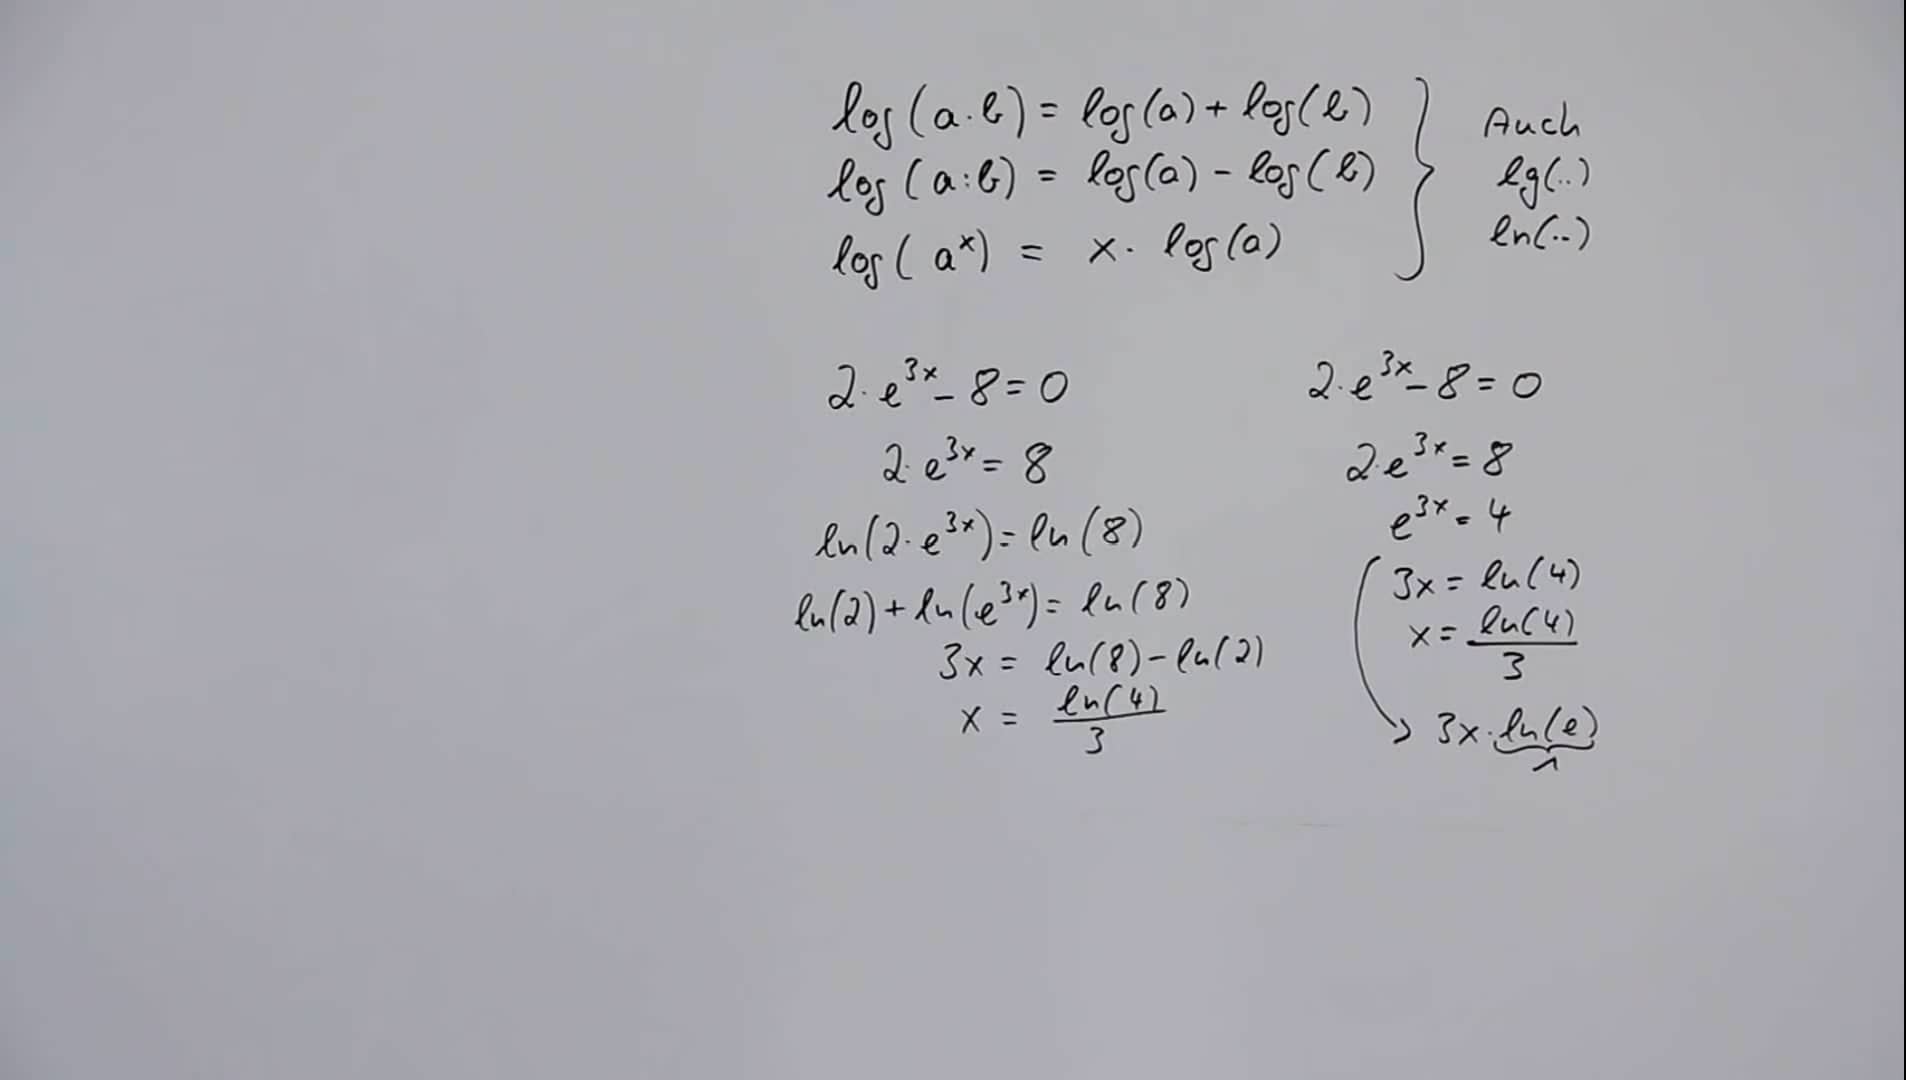 log(a·b) = log(a) + log(b)
log(a:b) = log(a) - log(b)
log(a^x) = x · log(a)
Auch
lg(..)
ln(..)
2·e^3x - 8 = 0
2·e^3x = 8
ln(2·e^3x) = ln(8)
ln(2) + ln(e^3x) = ln(8)
3x = ln(8) - ln(2)
x = ln(4)/3
2·e^3x - 8 = 0
2·e^3x = 8
e^3x = 4
3x = ln(4)
x = ln(4)/3
3x·ln(e)
1